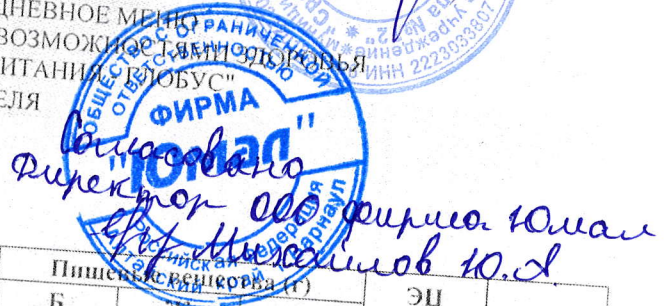 ДНЕВНОЕ МЕНЮ
ВОЗМОЖНОСТЯМИ ЗДОРОВЬЯ
ИТАНИЯ "ГЛОБУС"
ЕЛЯ
ИНН 2223033607
ОБЩЕСТВО С ОГРАНИЧЕННОЙ
ОТВЕТСТВЕННОСТЬЮ
ФИРМА
"Юмал"
Российская Федерация
Алтайский край г. Барнаул
Согласовано
Директор ООО фирма Юмал
Михайлов Ю.А.
Пищевые вещества (г)
ЭЦ
Б